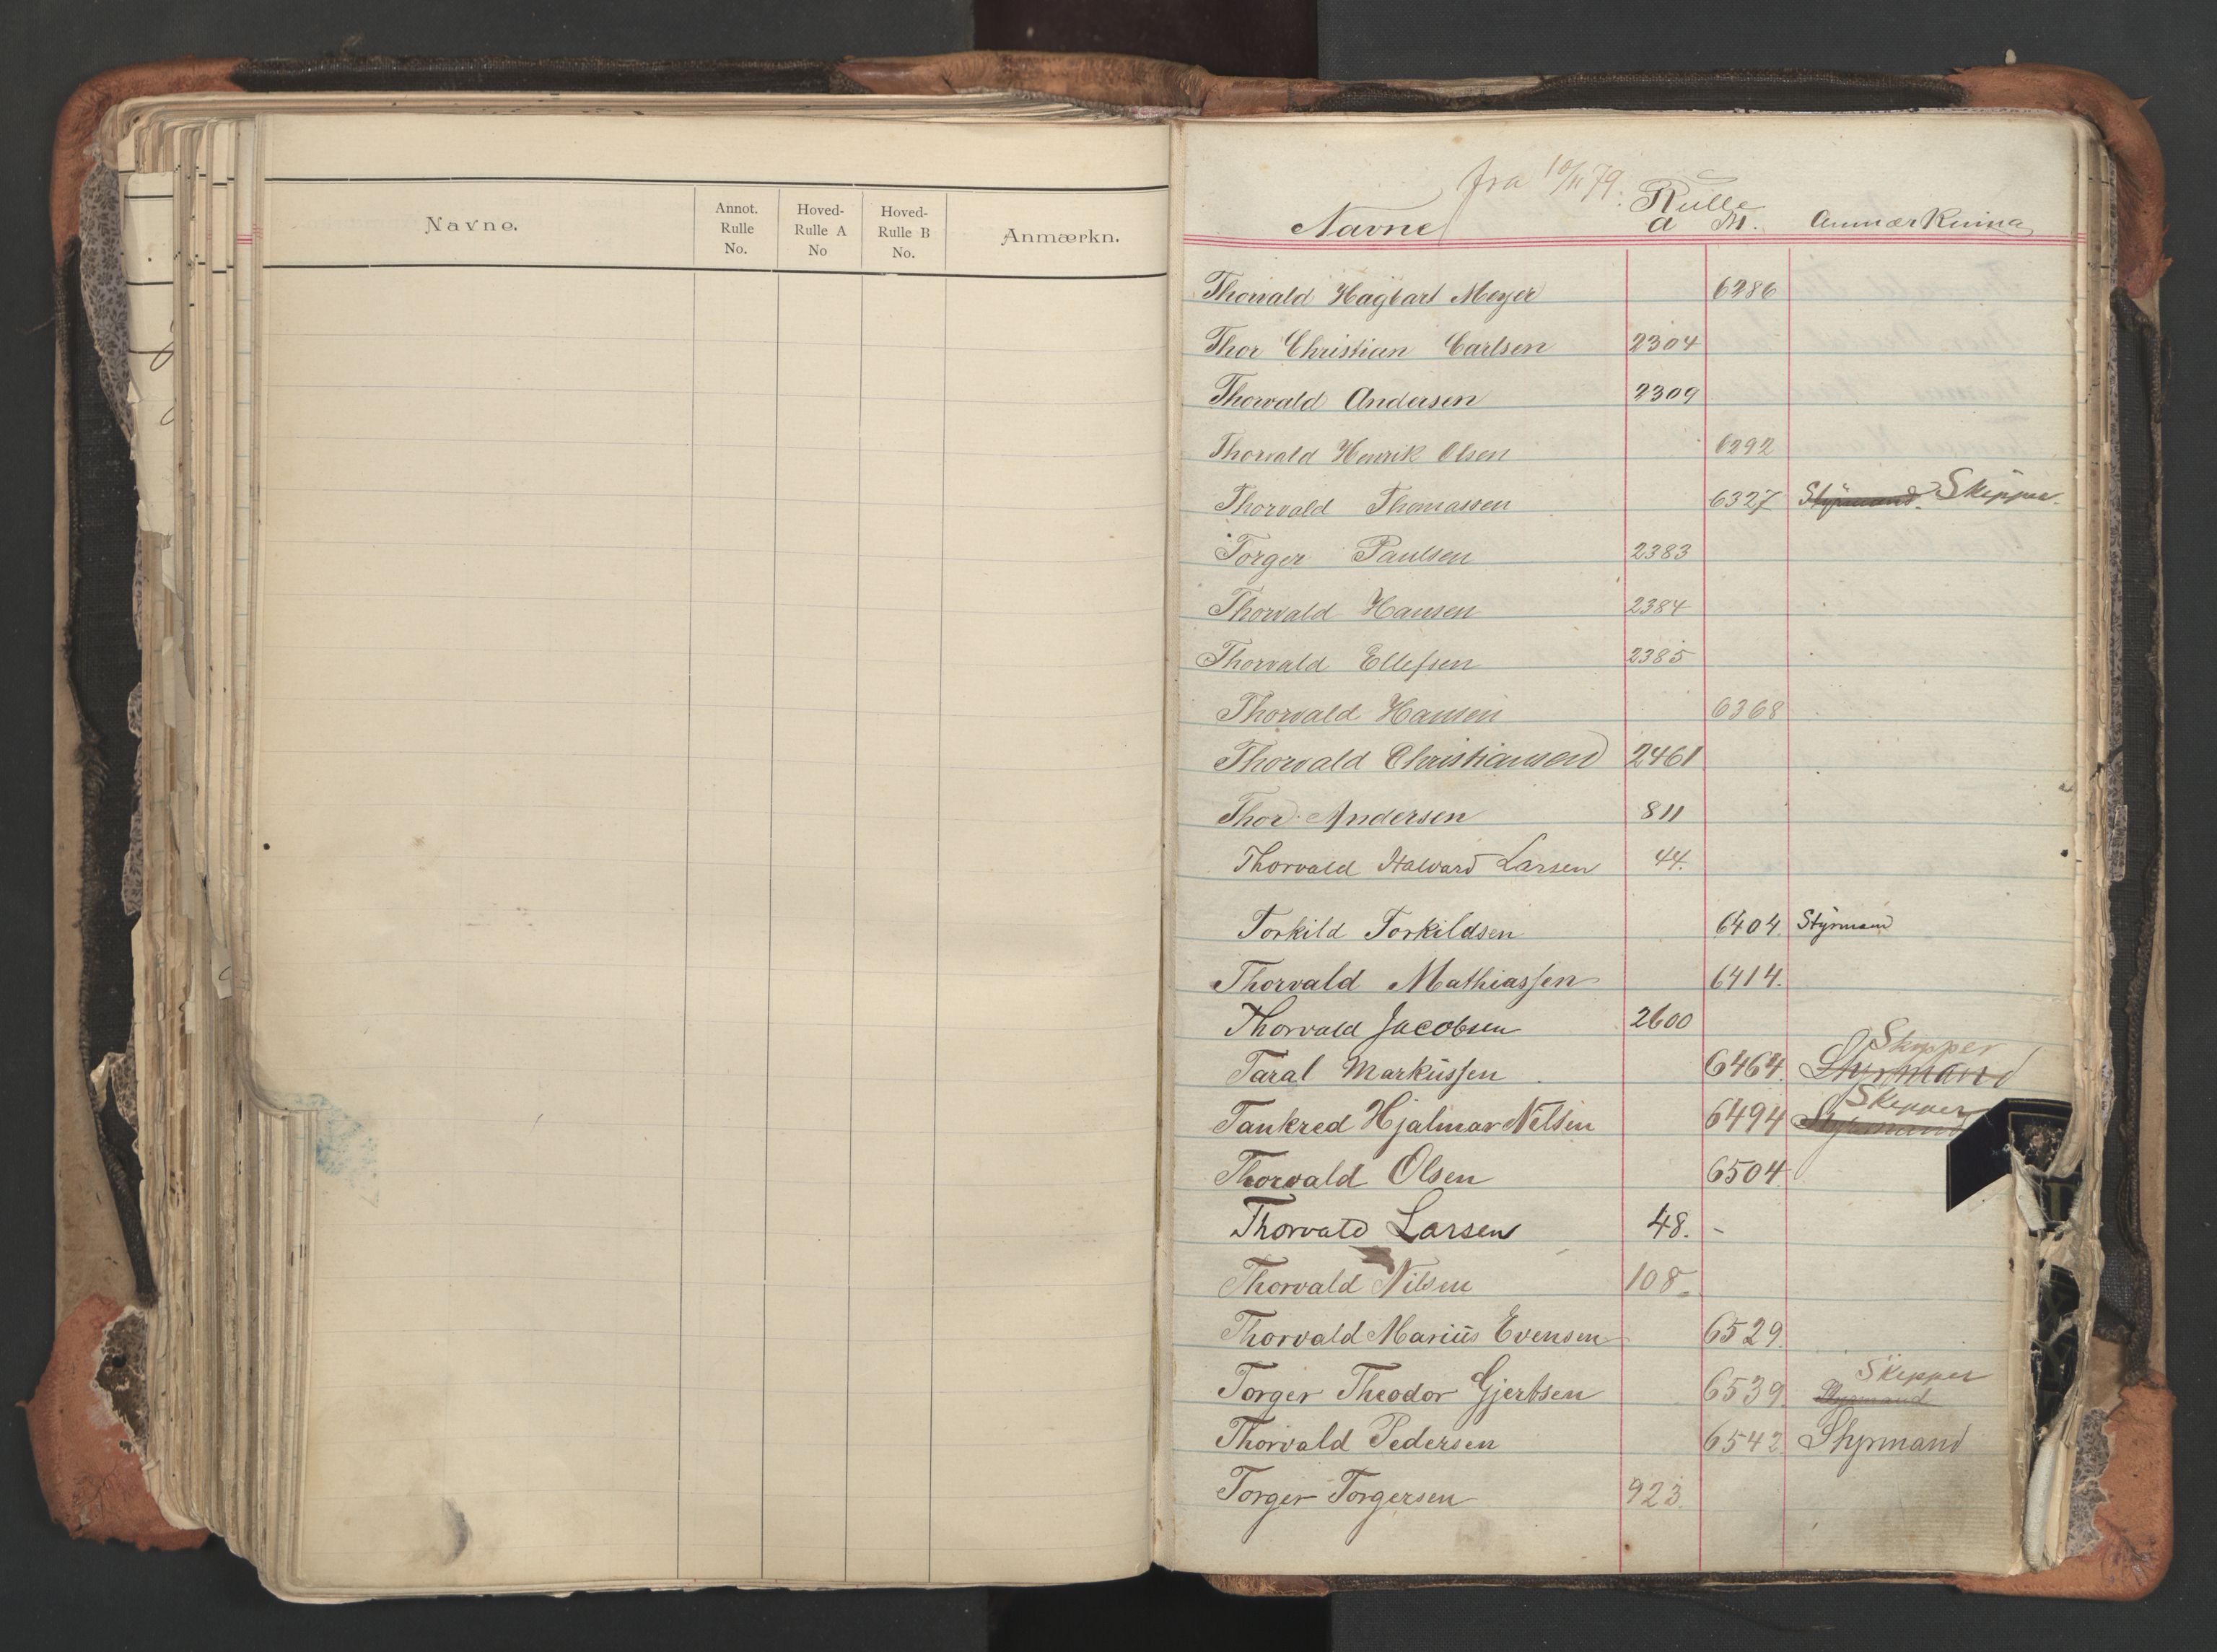 Navne.
Annot.
Rulle
No.
Hoved-
Rulle A
No
Hoved-
Rulle B
No.
Anmærkn.
fra 10/11 79.
Rulle
Navne a M. Anmærkning
Thorvald Hagbart Meyer 6286
Thor Christian Carlsen 2304
Thorvald Andersen 2309
Thorvald Henrik Olsen 6292
Thorvald Thomassen 6327 Styrmand. Skipper.
Torger Paulsen 2383
Thorvald Hansen 2384
Thorvald Ellefsen 2385
Thorvald Hansen 6368
Thorvald Christiansen 2461
Thor Andersen 811
Thorvald Halvard Larsen 44.
Torkild Torkildsen 6404. Styrmand
Thorvald Mathiassen 6414.
Thorvald Jacobsen 2600
Skipper
Taral Markussen 6464. Styrmand
Skipper
Tankred Hjalmar Nilsen 6494 Styrmand
Thorvald Olsen 6504
Thorvald Larsen 48. -
Thorvald Nilsen 108.
Thorvald Marius Evensen 6529.
Skipper
Torger Theodor Gjertsen 6539. Styrmand
Thorvald Pedersen 6542 Styrmand
Torger Torgersen 923.